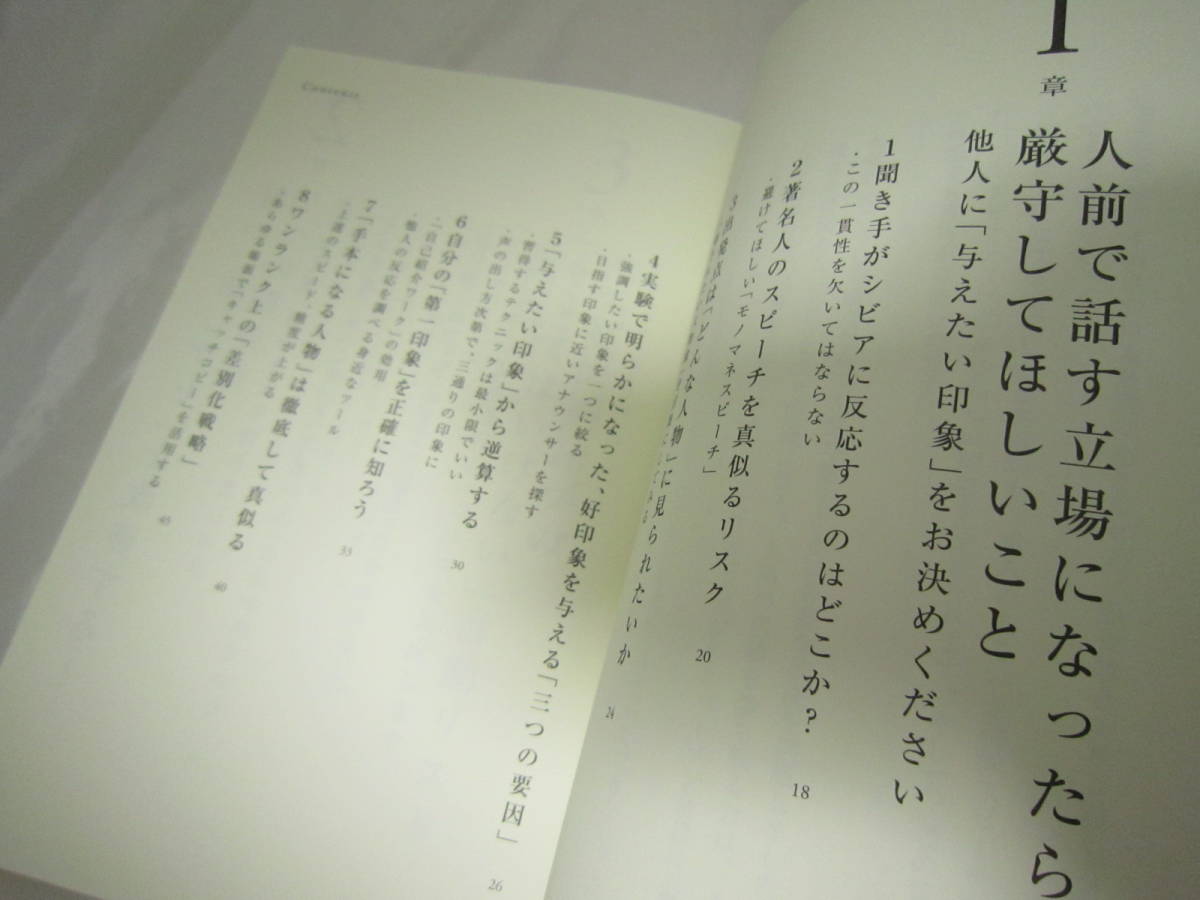 1
章
人前で話す立場になったら
厳守してほしいこと
他人に「与えたい印象」をお決めください
1聞き手がシビアに反応するのはどこか? 18
・この一貫性を欠いてはならない
2著名人のスピーチを真似るリスク 20
・避けてほしい「モノマネスピーチ」
3出発点は「どんな人物」に見られたいか 24
Contents
4実験で明らかになった、好印象を与える「三つの要因」 26
・強調したい印象を一つに絞る
・目指す印象に近いアナウンサーを探す
5「与えたい印象」から逆算する 30
・習得するテクニックは最小限でいい
・声の出し方次第で、三通りの印象に
6自分の「第一印象」を正確に知ろう 33
・「自己紹介ワーク」の効用
・他人の反応を調べる身近なツール
7「手本になる人物」は徹底して真似る 40
・上達のスピード・精度が上がる
8ワンランク上の「差別化戦略」 45
・あらゆる場面で「キャッチコピー」を活用する